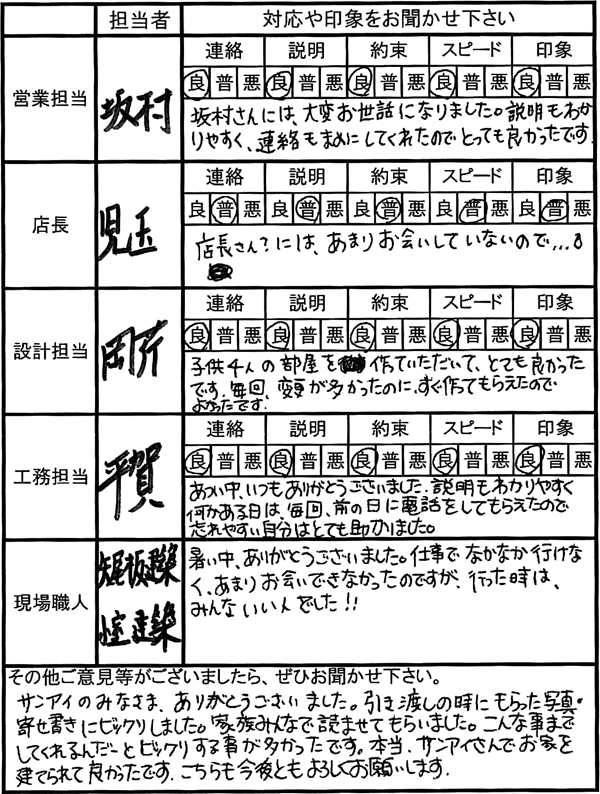 担当者 対応や印象をお聞かせ下さい
営業担当 坂村
連絡 説明 約束 スピード 印象
良 普 悪 良 普 悪 良 普 悪 良 普 悪 良 普 悪
坂村さんには、大変お世話になりました。説明もわか
りやすく、連絡もまめにしてくれたのでとっても良かったです.
店長 児玉
連絡 説明 約束 スピード 印象
良 普 悪 良 普 悪 良 普 悪 良 普 悪 良 普 悪
店長さん?には、あまりお会いしていないので...。
設計担当 岡芹
連絡 説明 約束 スピード 印象
良 普 悪 良 普 悪 良 普 悪 良 普 悪 良 普 悪
子供4人の部屋を作ていただいて、とても良かった
です。毎回、変更が多かったのに、すぐ作てもらえたので
よかったです.
工務担当 平賀
連絡 説明 約束 スピード 印象
良 普 悪 良 普 悪 良 普 悪 良 普 悪 良 普 悪
あつい中、いつもありがとうございました. 説明もわかりやすく
何かある日は、毎回、前の日に電話をしてもらえたので
忘れやすい自分はとても助かりました。
現場職人
暑い中、ありがとうございました。仕事でなかなか行けな
く、あまりお会いできなかったのですが、行った時は、
みんないい人でした!!
その他ご意見等がございましたら、ぜひお聞かせ下さい。
サンアイのみなさま、ありがとうございました。引き渡しの時にもらった写真・
寄せ書きにビックリしました。家族みんなで読ませてもらいました。こんな事まで
してくれるんだーとビックリする事が多かったです。本当、サンアイさんでお家を
建てられて良かったです. こちらも今後ともよろしくお願いします.